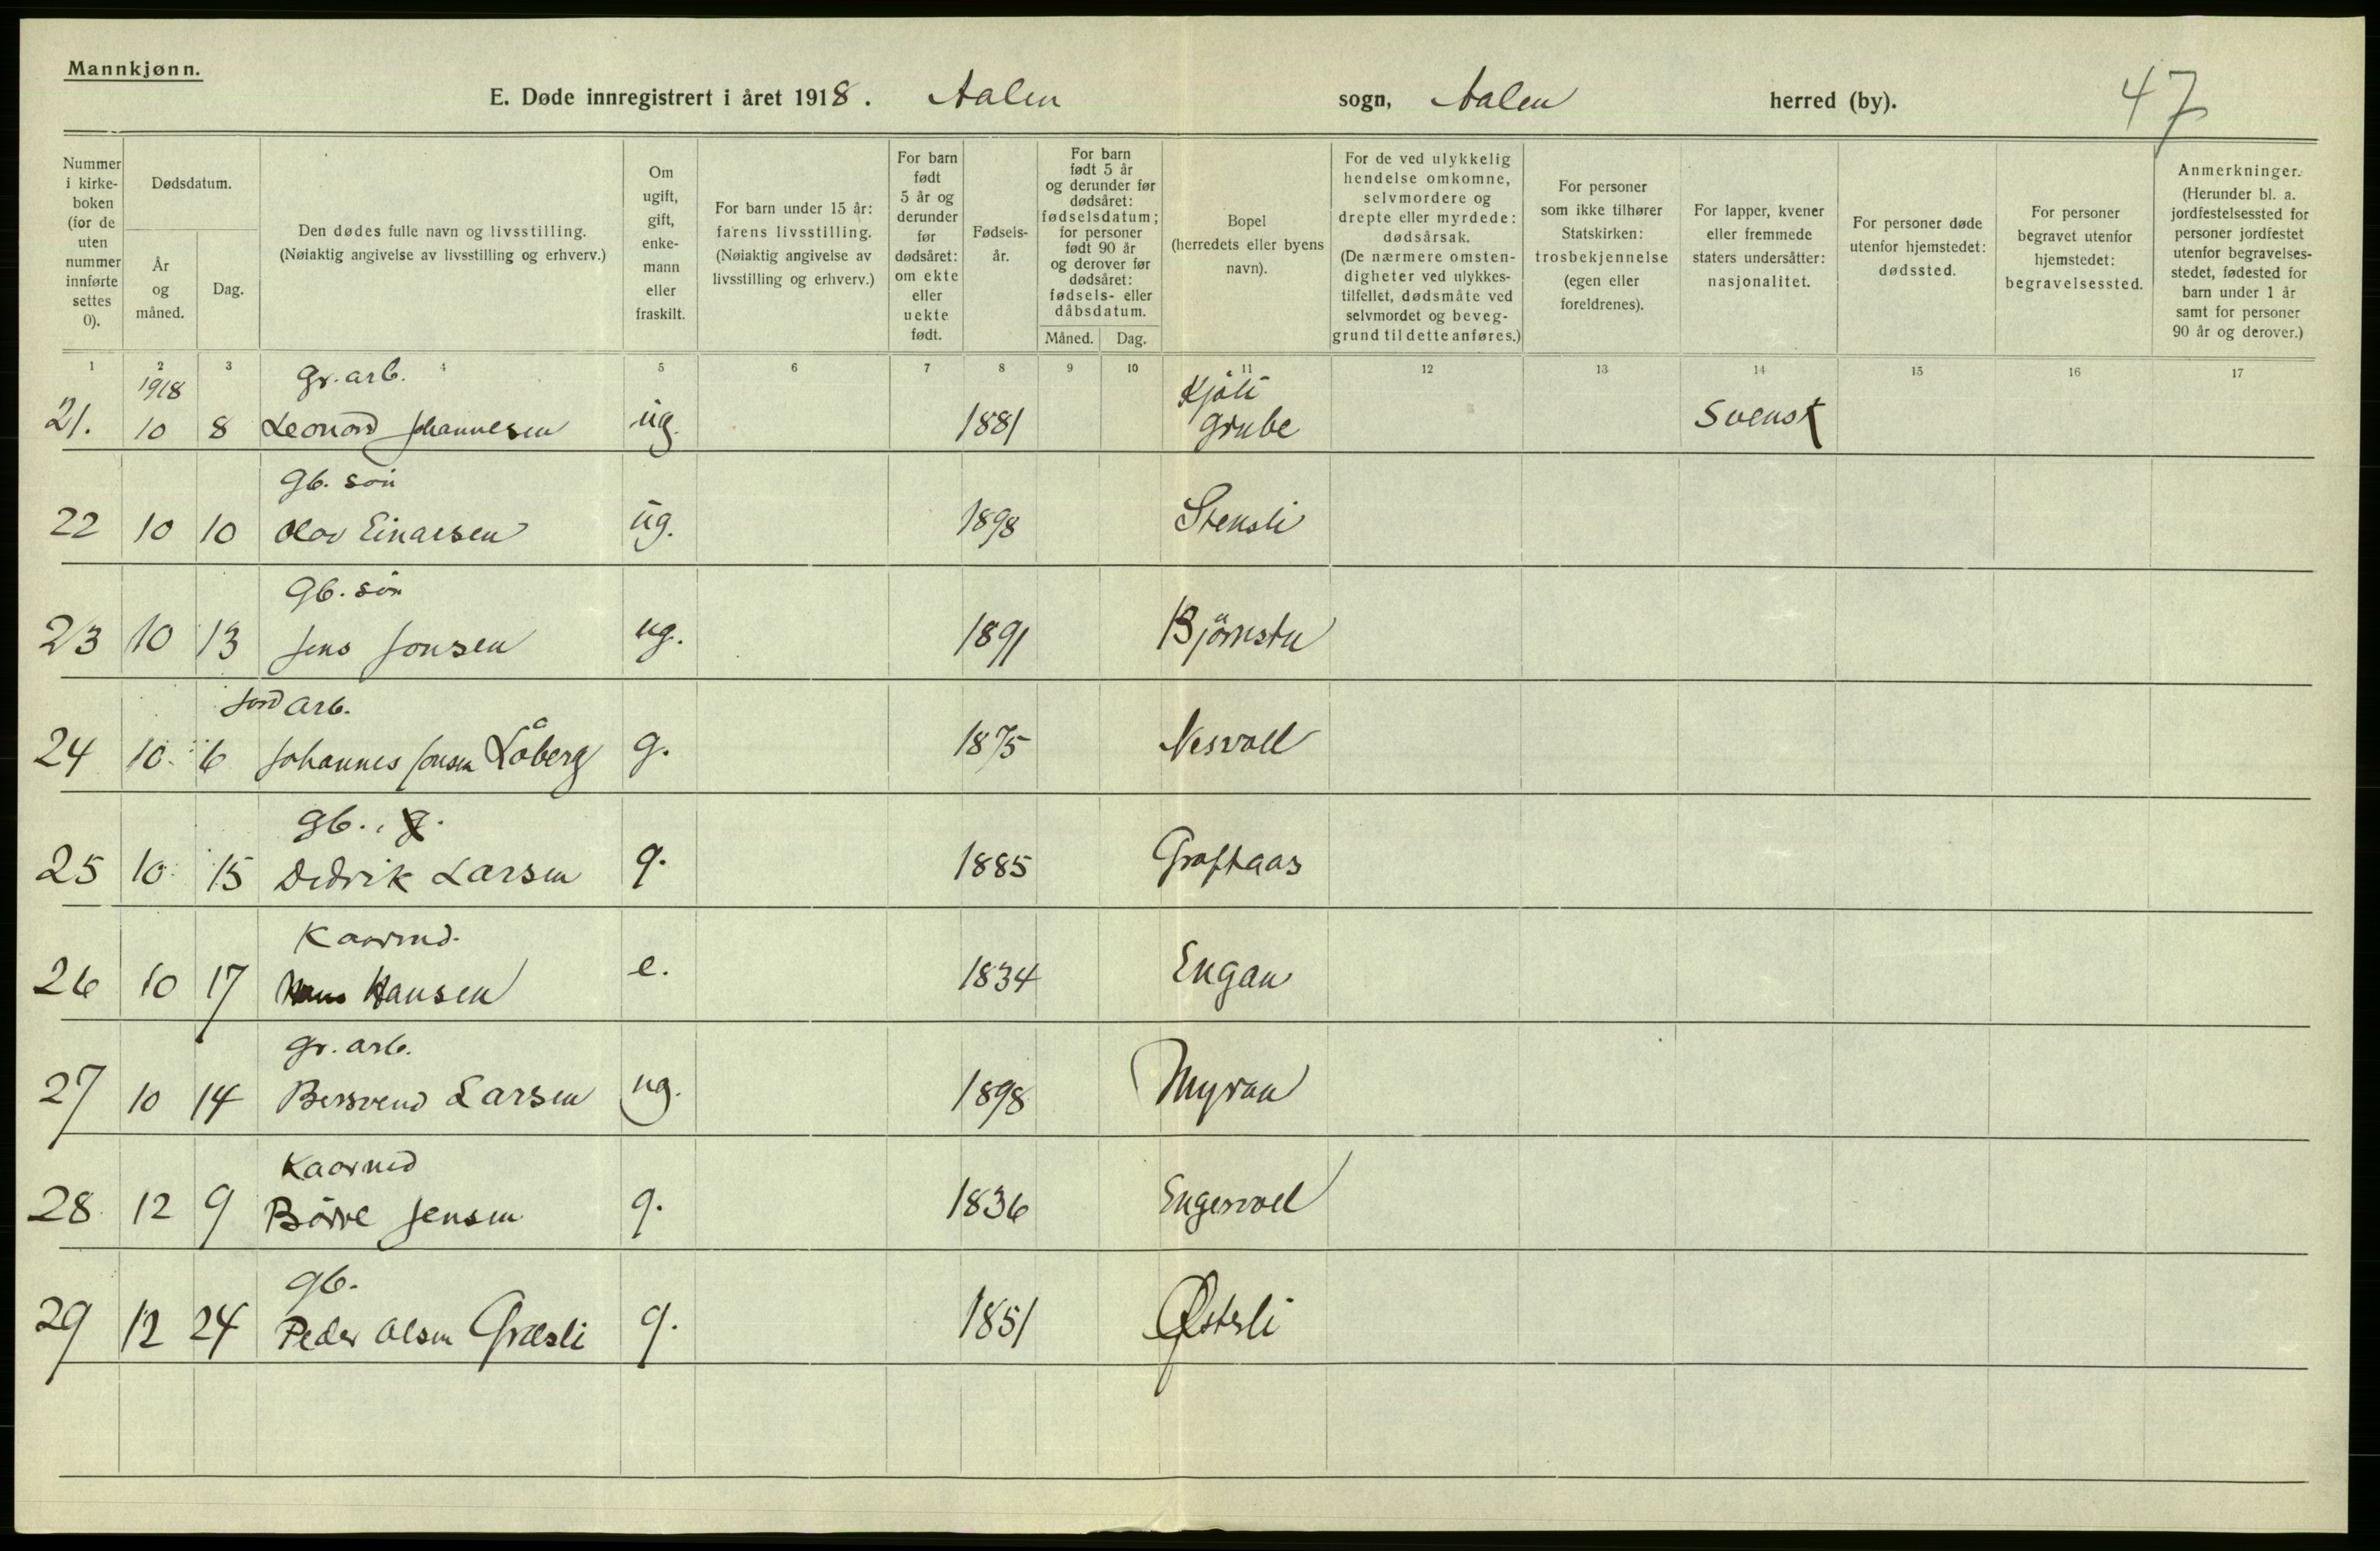 Mannkjønn.
E. Døde innregistrert i året 1918. Aalen sogn, Aalen herred (by). 47
Nummer i kirke- boken (for de uten nummer innførte settes 0).
Dødsdatum.
År og måned.
Dag.
Den dødes fulle navn og livsstilling. (Nøiaktig angivelse av livsstilling og erhverv.)
Om ugift, gift, enke- mann eller fraskilt.
For barn under 15 år: farens livsstilling. (Nøiaktig angivelse av livsstilling og erhverv.)
For barn født 5 år og derunder før dødsåret: om ekte eller uekte født.
Fødsels- år.
For barn født 5 år og derunder før dødsåret: fødselsdatum; for personer født 90 år og derover før dødsåret: fødsels- eller dåbsdatum.
Måned.
Dag.
Bopel (herredets eller byens navn).
For de ved ulykkelig hendelse omkomne, selvmordere og drepte eller myrdede: dødsårsak. (De nærmere omsten- digheter ved ulykkes- tilfellet, dødsmåte ved selvmordet og beveg- grund til dette anføres.)
For personer som ikke tilhører Statskirken: trosbekjennelse (egen eller foreldrenes).
For lapper, kvener eller fremmede staters undersåtter: nasjonalitet.
For personer døde utenfor hjemstedet: dødssted.
For personer begravet utenfor hjemstedet: begravelsessted.
Anmerkninger. (Herunder bl. a. jordfestelsessted for personer jordfestet utenfor begravelses- stedet, fødested for barn under 1 år samt for personer 90 år og derover.)
1 2 3 4 5 6 7 8 9 10 11 12 13 14 15 16 17
1918 gr. arb. Kjöli
21. 10 8 Leonard Johannesen ug. 1881 grube Svensk
gb. sön
22 10 10 Olav Einarsen ug. 1898 Stensli
Gb. sön
23 10 13 Jens Jonsen ug. 1891 Björnstu
Jord arb.
24 10 6 Johannes Jonsen Låberg g. 1875 Nesvoll
gb.
25 10 15 Dedrik Larsen g. 1885 Graftaas
Kaarmd.
26 10 17 Hans Hansen e. 1834 Engan
gr. arb.
27 10 14 Bersvend Larsen ug. 1898 Myran
Kaarmd
28 12 9 Börre Jensen g. 1836 Engesvoll
gb.
29 12 24 Peder Olsen Græsli g. 1851 Østerli